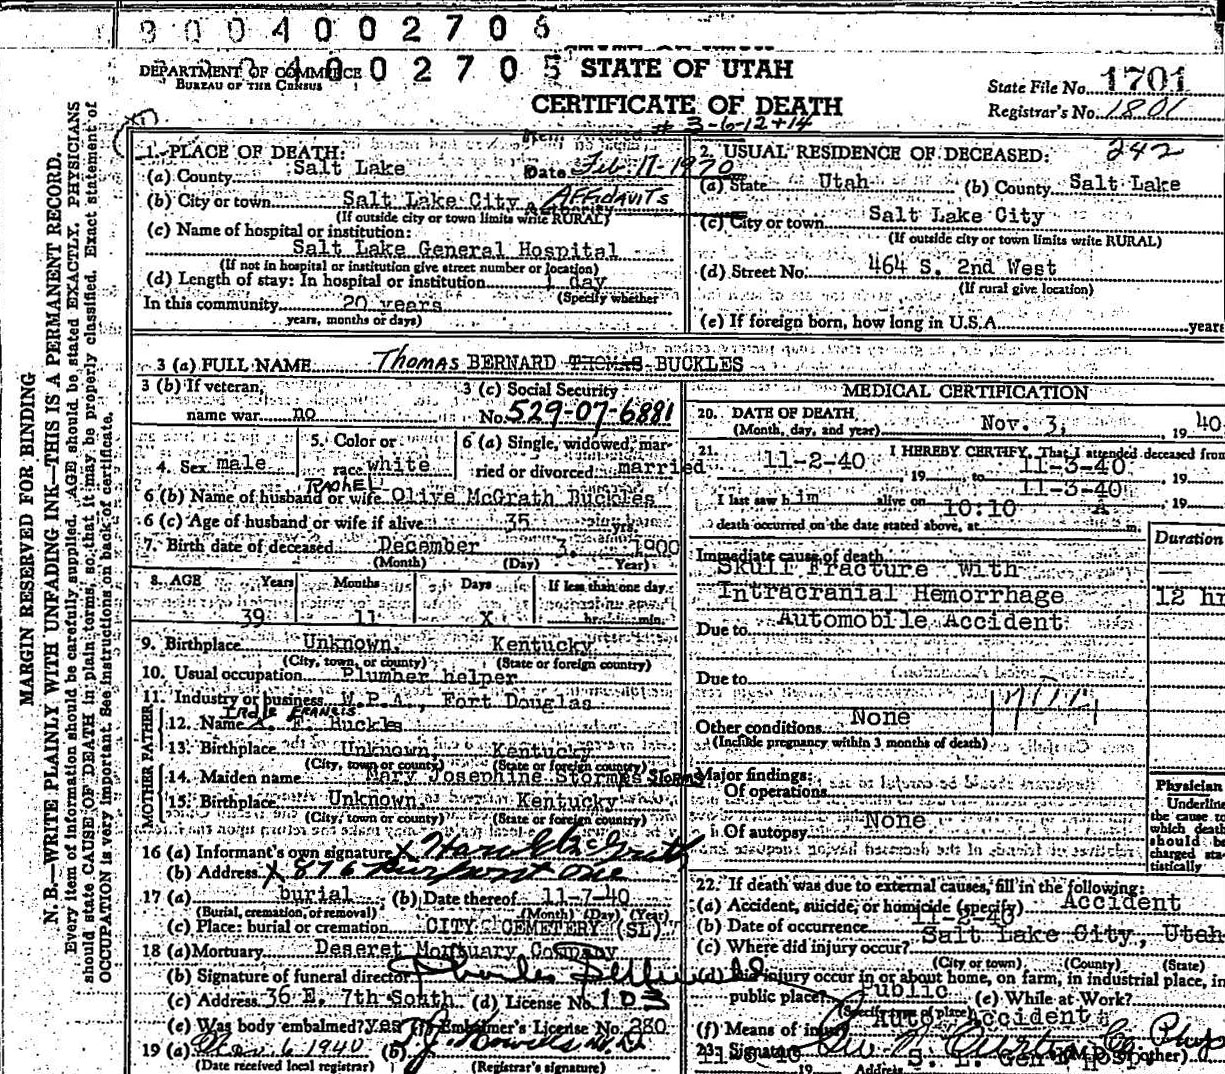 3 0 0 4 0 0 2 7 0 6
DEPARTMENT OF COMMERCE
BUREAU OF THE CENSUS
0 0 2 7 0 5
STATE OF UTAH
CERTIFICATE OF DEATH
State File No. 1701
Registrar's No. 1801
# 3-6-12+14
Date Feb. 17-1970
AFFIDAVITS
242
MARGIN RESERVED FOR BINDING
N. B.—WRITE PLAINLY WITH UNFADING INK—THIS IS A PERMANENT RECORD.
Every item of information should be carefully supplied. AGE should be stated EXACTLY. PHYSICIANS
should state CAUSE OF DEATH in plain terms, so that it may be properly classified. Exact statement of
OCCUPATION is very important. See instructions on back of certificate.
1. PLACE OF DEATH:
(a) County Salt Lake
(b) City or town Salt Lake City
(If outside city or town limits write RURAL)
(c) Name of hospital or institution:
Salt Lake General Hospital
(If not in hospital or institution give street number or location)
(d) Length of stay: In hospital or institution 1 day
(Specify whether
In this community 20 years
years, months or days)
2. USUAL RESIDENCE OF DECEASED:
(a) State Utah (b) County Salt Lake
(c) City or town Salt Lake City
(If outside city or town limits write RURAL)
(d) Street No. 464 S. 2nd West
(If rural give location)
(e) If foreign born, how long in U.S.A. years
3 (a) FULL NAME Thomas BERNARD THOMAS BUCKLES
3 (b) If veteran, name war no
3 (c) Social Security No. 529-07-6881
4. Sex male
5. Color or race white
6 (a) Single, widowed, married or divorced married
RACHEL
6 (b) Name of husband or wife Olive McGrath Buckles
6 (c) Age of husband or wife if alive 35 yrs.
7. Birth date of deceased December 3, 1900
(Month) (Day) Year)
8. AGE Years Months Days If less than one day
39 11 X hr. min.
9. Birthplace Unknown, Kentucky
(City, town, or county) (State or foreign country)
10. Usual occupation Plumber helper
11. Industry or business W.P.A., Fort Douglas
FATHER
FRANCIS
12. Name F. Buckls
13. Birthplace Unknown, Kentucky
(City, town or county) (State or foreign country)
MOTHER
14. Maiden name Mary Josephine Storms
15. Birthplace Unknown, Kentucky
(City, town, or county) (State or foreign country)
16 (a) Informant's own signature X Harold McGrath
(b) Address X 876
17 (a) burial (b) Date thereof 11-7-40
(Burial, cremation, or removal) (Month) (Day) (Year)
(c) Place: burial or cremation CITY CEMETERY (SL)
18 (a) Mortuary Deseret Mortuary Company
(b) Signature of funeral director
(c) Address 36 E. 7th South (d) License No. 103
(e) Was body embalmed? yes (f) Embalmer's License No. 280
19 (a) Nov. 6 1940 (b)
(Date received local registrar) (Registrar's signature)
MEDICAL CERTIFICATION
20. DATE OF DEATH
(Month, day, and year) Nov. 3, 19 40
21. I HEREBY CERTIFY, That I attended deceased from
11-2-40, 19 to 11-3-40, 19
I last saw him alive on 11-3-40, 19
death occurred on the date stated above, at 10:10 A m.
Duration
Immediate cause of death
Skull Fracture with
Intracranial Hemorrhage 12 hr
Due to Automobile Accident
Due to
Other conditions None
(Include pregnancy within 3 months of death)
Major findings:
Of operations
Of autopsy None
Physician
Underline
the cause to
which death
should be
charged sta-
tistically
22. If death was due to external causes, fill in the following:
(a) Accident, suicide, or homicide (specify) Accident
(b) Date of occurrence 11-2-40
(c) Where did injury occur? Salt Lake City, Utah
(City or town) (County) (State)
(d) Did injury occur in or about home, on farm, in industrial place, in
public place? Public (e) While at Work?
(Specify type of place)
(f) Means of injury Auto Accident
23. Signature (M.D. or other)
S. L. Gen'l Hosp.
Address